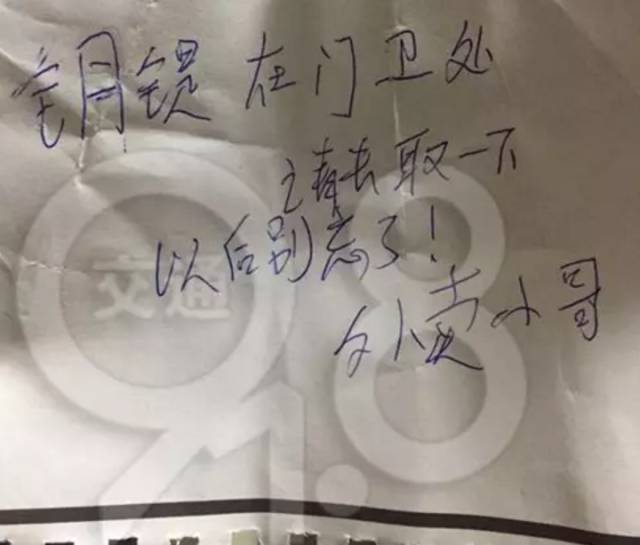 钥锒 在门卫处
请去取一下
以后别忘了!
外卖小哥
交通
91.8